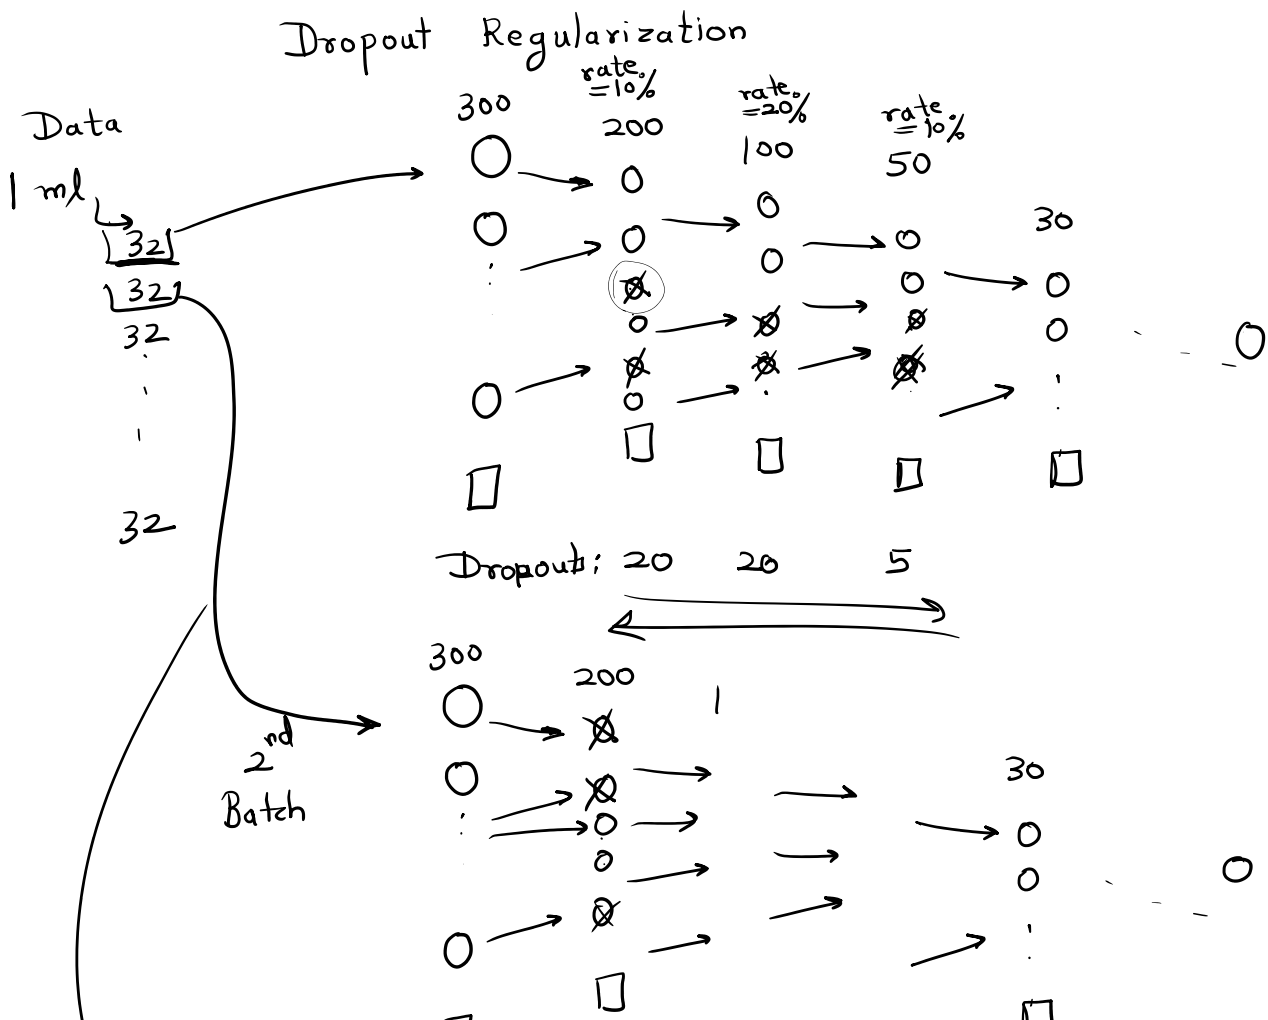 Dropout Regularization
Data
1 ml
32
32
32
32
300
rate
=10%
200
rate
=20%
100
rate
=10%
50
30
Dropout: 20 20 5
2nd
Batch
300
200
30